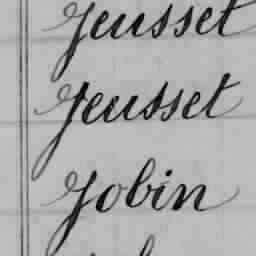 Jeusset
Jeusset
Jobin